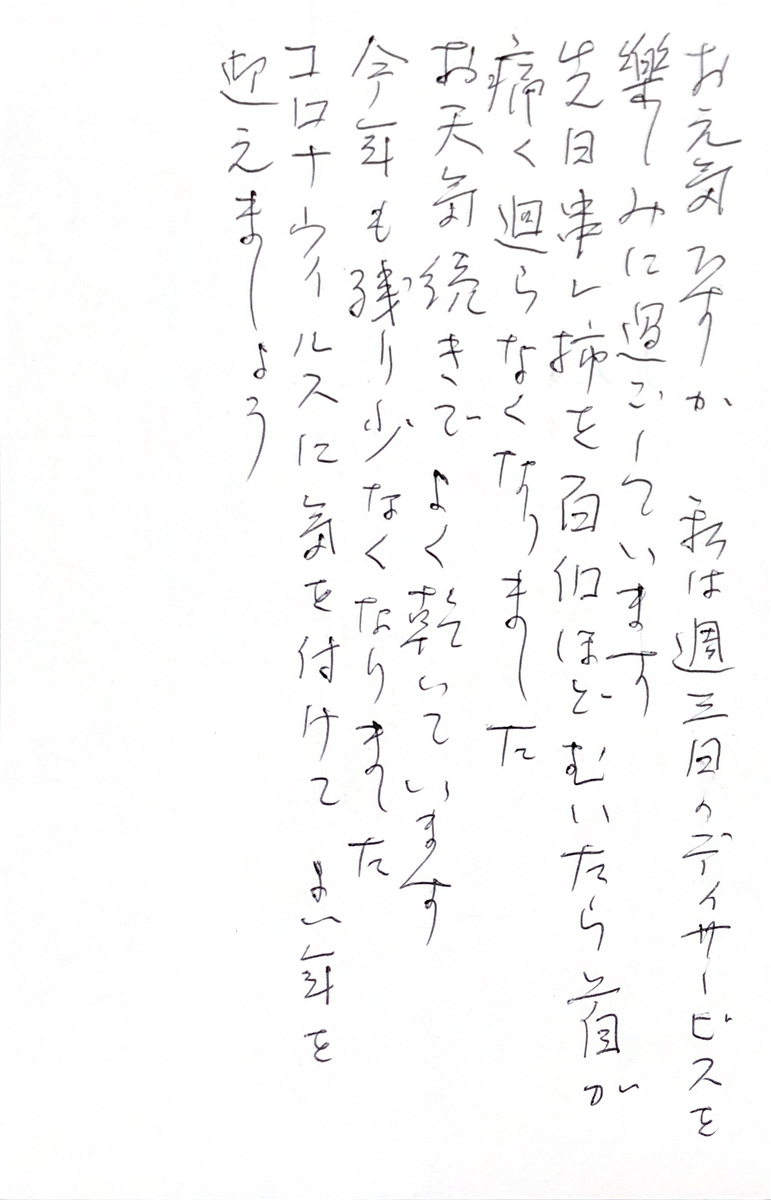 お元気ですか 私は週三日のデイサービスを
楽しみに過ごしています
先日串し柿を百個ほどむいたら首が
痛く廻らなくなりました
お天気続きで よく乾いています
今年も残り少なくなりました
コロナウイルスに気を付けて よい年を
迎えましょう